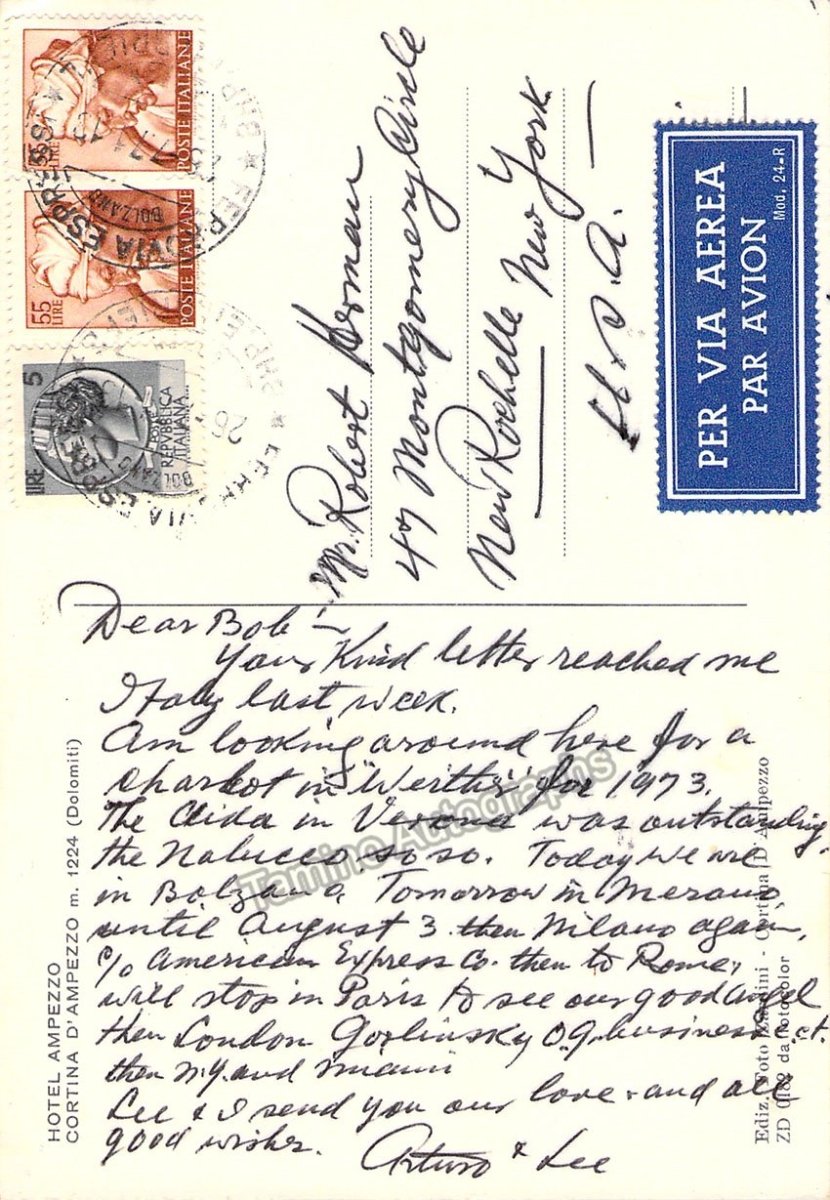 Dear Bob -
Your Kind letter reached me
Italy last week.
Am looking around here for a
Charlot in "Werther" for 1973.
The Aida in Verona was outstanding,
the Nabucco so so. Today we are
in Bolzano, Tomorrow in Merano
until August 3 then Milano again,
c/o American Express Co. then to Rome,
will stop in Paris to see our good angel
then London Gorlinsky O.G. business, ct.
then N.Y. and Miami
Lee & I send you our love - and all
good wishes. Arturo & Lee
Mr. Robert Herman
47 Montgomery Circle
New Rochelle New York
U.S.A.
PER VIA AEREA
PAR AVION
Mod. 24-R
POSTE ITALIANE
55 LIRE
POSTE ITALIANE
5 LIRE
REPVBBLICA
ITALIANA
BOLZANO
HOTEL AMPEZZO
CORTINA D'AMPEZZO m. 1224 (Dolomiti)
Cortina D'Ampezzo
ZD 0182 da fotocolor
Tamino Autographs